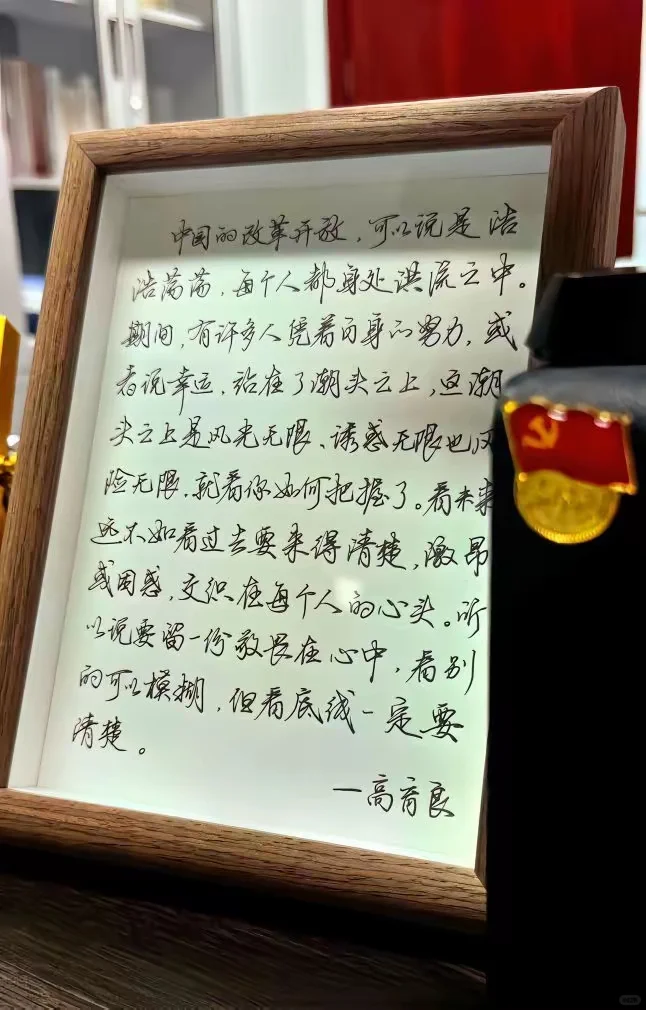 中国的改革开放，可以说是浩
浩荡荡，每个人都身处洪流之中。
期间，有许多人凭着自身的努力，或
者说幸运，站在了潮头之上，这潮
头之上是风光无限、诱惑无限也风
险无限，就看你如何把握了。看未来
远不如看过去要来得清楚，激昂
或困惑，交织在每个人的心头。所
以说要留一份敬畏在心中，看别
的可以模糊，但看底线一定要
清楚。
一高育良